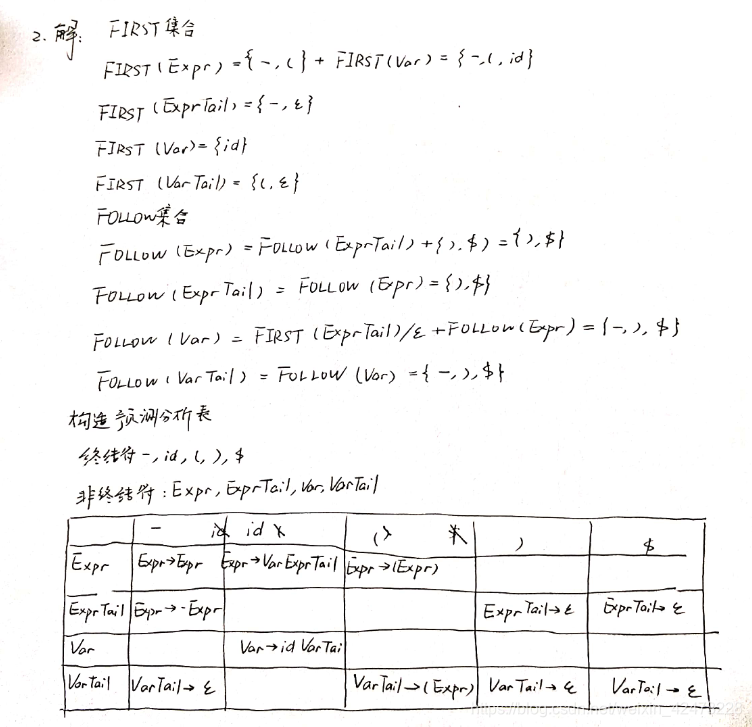 2. 解: FIRST集合
FIRST(Expr) = {-, (} + FIRST(Var) = {-, (, id}
FIRST(ExprTail) = {-, ε}
FIRST(Var) = {id}
FIRST(VarTail) = {(, ε}
FOLLOW集合
FOLLOW(Expr) = FOLLOW(ExprTail) + {), $) = {), $}
FOLLOW(ExprTail) = FOLLOW(Expr) = {), $}
FOLLOW(Var) = FIRST(ExprTail)/ε + FOLLOW(Expr) = {-, ), $}
FOLLOW(VarTail) = FOLLOW(Var) = {-, ), $}
构造预测分析表
终结符 -, id, (, ), $
非终结符: Expr, ExprTail, Var, VarTail
- id ( ) $
Expr Expr→Expr Expr→Var ExprTail Expr→(Expr)
ExprTail Expr→-Expr ExprTail→ε ExprTail→ε
Var Var→id VarTai
VarTail VarTail→ε VarTail→(Expr) VarTail→ε VarTail→ε